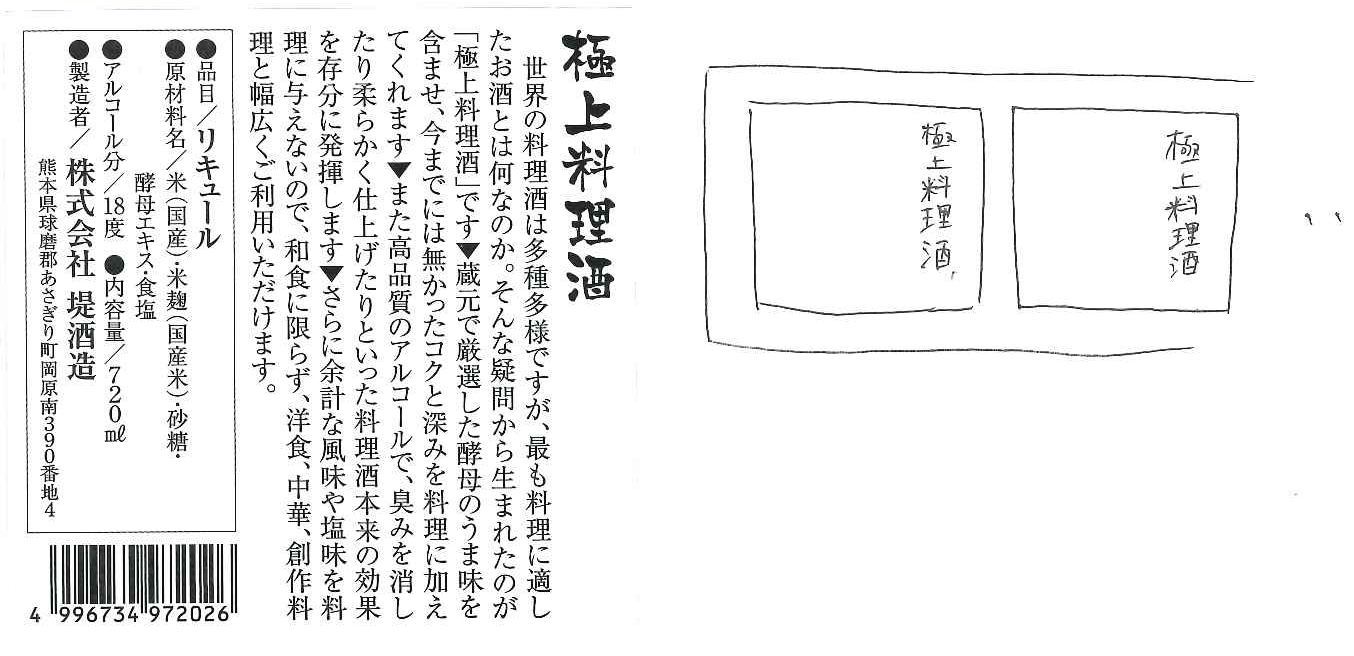 極上料理酒
世界の料理酒は多種多様ですが、最も料理に適し
たお酒とは何なのか。そんな疑問から生まれたのが
「極上料理酒」です▼蔵元で厳選した酵母のうま味を
含ませ、今までには無かったコクと深みを料理に加え
てくれます▼また高品質のアルコールで、臭みを消し
たり柔らかく仕上げたりといった料理酒本来の効果
を存分に発揮します▼さらに余計な風味や塩味を料
理に与えないので、和食に限らず、洋食、中華、創作料
理と幅広くご利用いただけます。
●品目/リキュール
●原材料名/米(国産)・米麹(国産米)・砂糖・
酵母エキス・食塩
●アルコール分/18度 ●内容量/720㎖
●製造者/株式会社 堤酒造
熊本県球磨郡あさぎり町岡原南390番地4
4 996734 972026
極上料理酒
極上料理酒